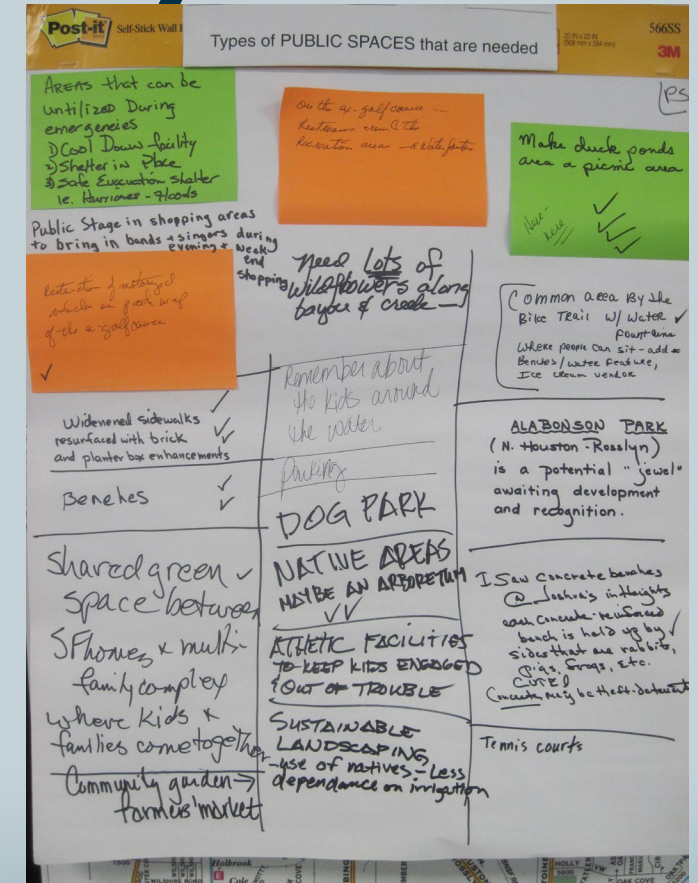 Post-it Self-Stick Wall
Types of PUBLIC SPACES that are needed
20 IN x 23 IN
(508 mm x 584 mm)
566SS
3M
PS
AREAS that can be
untilized During
emergencies
1) Cool Down facility
2) Shelter in Place
3) Safe Evacuation Shelter
ie. Hurricanes - Floods
Public Stage in shopping areas
to bring in bands + singers during
evening + week
end
shopping
Restriction of motorized
vehicles on
of the ex-golf course
✓
✓
Widenened sidewalks ✓
resurfaced with brick ✓
and planter box enhancements
Benches ✓
✓
Shared green ✓
space between
SF homes & multi-
family complex
where kids &
families come together
Community garden →
farmers' market
On the ex-golf course
Restrooms around the
Recreation area - & Water fountain
Need LOTS of
wildflowers along
bayou & creek —
Remember about
the kids around
the water
Parking
DOG PARK
NATIVE AREAS
MAYBE AN ARBORETUM
✓✓
ATHETIC FACILITIES
TO KEEP KIDS ENGAGED
& OUT OF TROUBLE
SUSTAINABLE
LANDSCAPING
-use of natives - Less
dependance on irrigation
Make duck ponds
area a picnic area
Here-
here
✓
✓
✓
✓
Common area By the
Bike Trail w/ Water ✓
fountains
Where people can sit - add
Benches/water feature,
Ice cream vendor
ALABONSON PARK
(N. Houston-Rosslyn)
is a potential "jewel"
awaiting development
and recognition.
I saw concrete benches
@ Joshua's in Heights
each concrete-reinforced
bench is held up by ✓
sides that are rabbits,
pigs, frogs, etc.
CUTE!
Concrete may be theft-deterrent
Tennis courts
7500
Holbrook
Cole
HOLLY
5600
OAK COVE